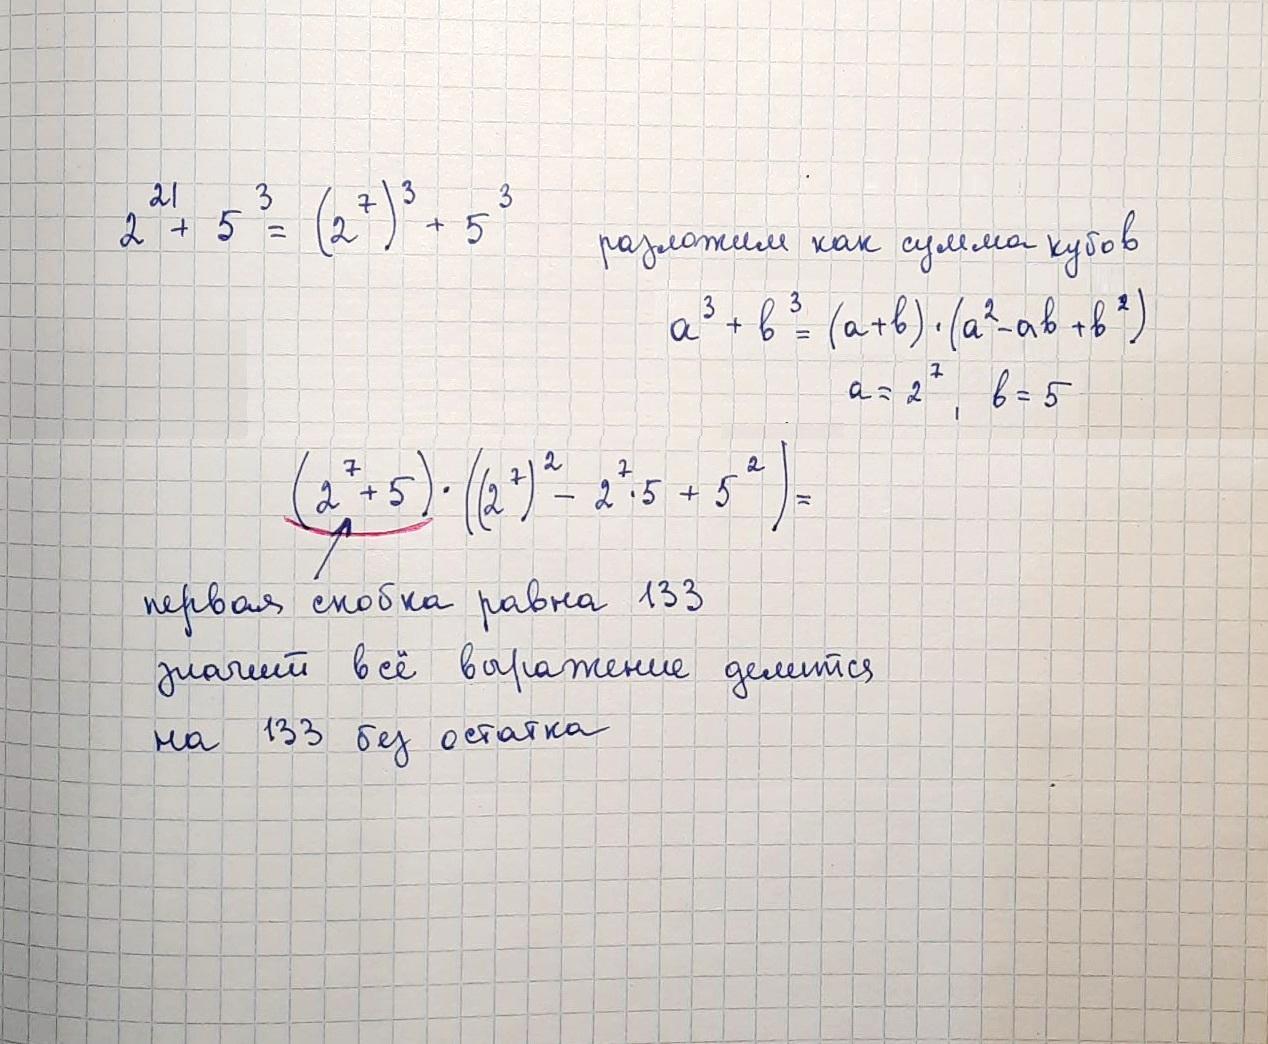 2²¹ + 5³ = (2⁷)³ + 5³
разложим как сумма кубов
a³ + b³ = (a+b)·(a² - ab + b²)
a = 2⁷, b = 5
(2⁷ + 5)·((2⁷)² - 2⁷·5 + 5²) =
первая скобка равна 133
значит всё выражение делится
на 133 без остатка